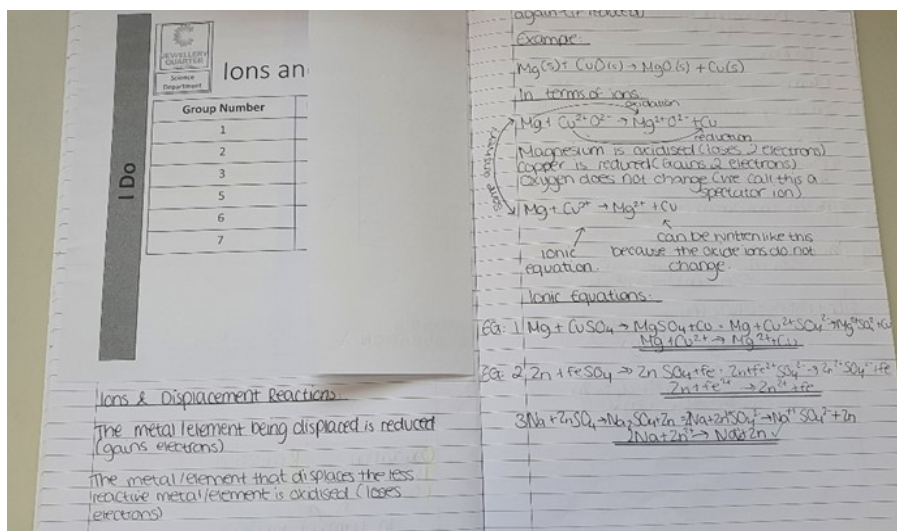 JEWELLERY
QUARTER
Science
Department
Ions an
I Do
Group Number
1
2
3
5
6
7
Ions & Displacement Reactions:
The metal/element being displaced is reduced
(gains electrons)
The metal/element that displaces the less
reactive metal/element is oxidised (loses
electrons)
Example:
Mg(s) + CuO(s) → MgO(s) + Cu(s)
In terms of ions
oxidation
Mg + Cu²⁺O²⁻ → Mg²⁺O²⁻ + Cu
reduction
Magnesium is oxidised (loses 2 electrons)
copper is reduced (Gains 2 electrons)
oxygen does not change (we call this a
spectator ion)
same answer
Mg + Cu²⁺ → Mg²⁺ + Cu
ionic
equation.
can be written like this
because the oxide ions do not
change.
Ionic Equations:
EG: 1 Mg + CuSO₄ → MgSO₄ + Cu = Mg + Cu²⁺SO₄²⁻ → Mg²⁺SO₄²⁻ + Cu
Mg + Cu²⁺ → Mg²⁺ + Cu
EG: 2, Zn + FeSO₄ → ZnSO₄ + Fe = Zn + Fe²⁺SO₄²⁻ → Zn²⁺SO₄²⁻ + Fe
Zn + Fe²⁺ → Zn²⁺ + Fe
3 Na + ZnSO₄ → Na₂SO₄ + Zn